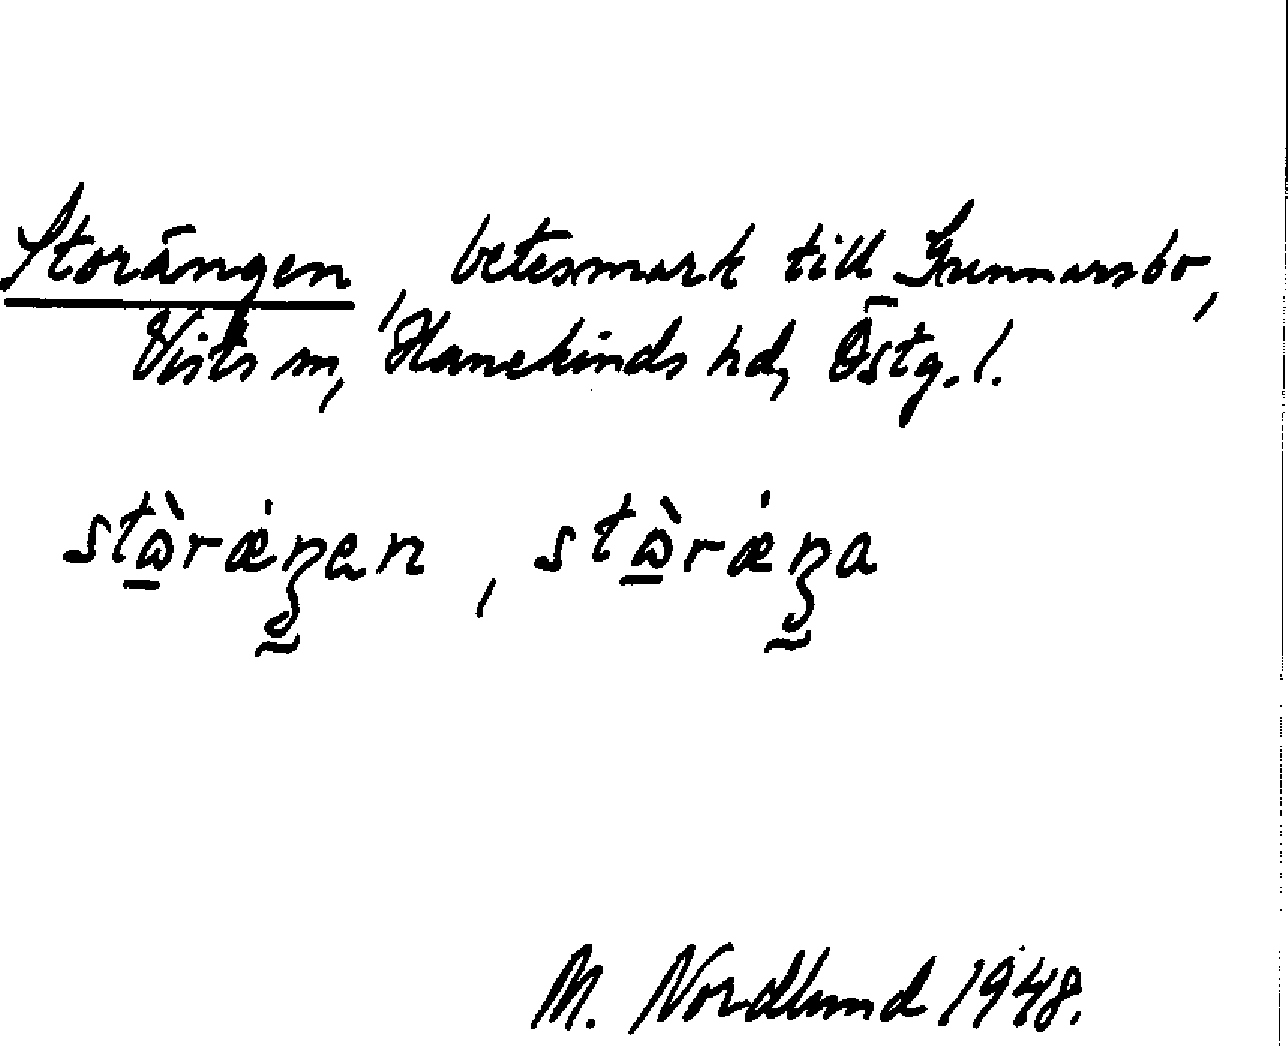 Storängen, betesmark till Gunnarsbo,
Vists sn, Hanekinds hd, Östg. l.
stὼ̲rǽŋ̲en, stὼ̲rǽŋ̲a
M. Nordlund 1948.